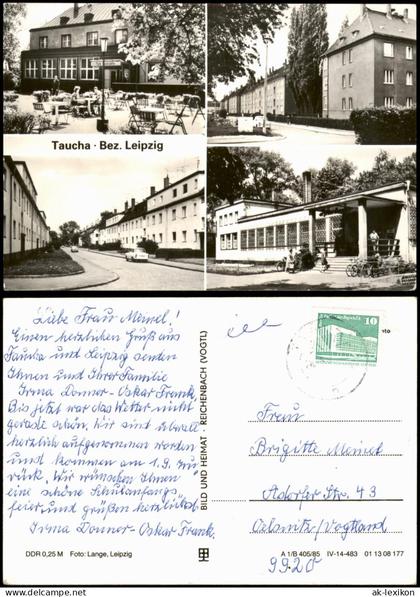 Taucha · Bez. Leipzig
Liebe Frau Meinel!
Einen herzlichen Gruß aus
Taucha und Leipzig senden
Ihnen und Ihrer Familie
Irma Donner - Oskar Frank.
Bis jetzt war das Wetter nicht
gerade schön. Wir sind überall
herzlich aufgenommen worden
und kommen am 1.9. zu-
rück. Wir wünschen Ihnen
eine schöne Schulanfangs-
feier und grüßen herzlichst
Irma Donner - Oskar Frank.
BILD UND HEIMAT · REICHENBACH (VOGTL)
10
Frau
Brigitte Meinel
Adorfer Str. 43
Oelsnitz/Vogtland
9920
DDR 0,25 M Foto: Lange, Leipzig
A 1/B 405/85 IV-14-483 01 13 08 177
www.ansichtskartenversand.com/ak
ak-lexikon